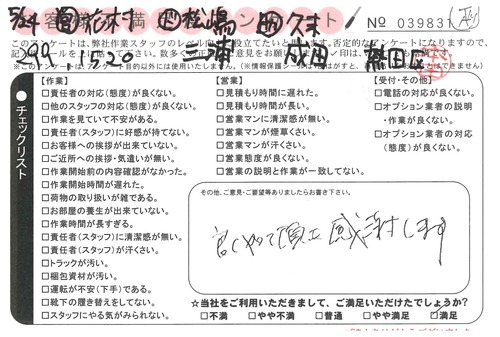 お客様不満アンケート
No 039831
5/24
このアンケートは、弊社作業スタッフのレベル向上に役立てたいと
※このアンケートは、アンケート目的以外には使用いたしません。
チェックリスト
【作業】
□責任者の対応(態度)が良くない。
□他のスタッフの対応(態度)が良くない。
□作業を見ていて不安がある。
□責任者(スタッフ)に好感が持てない。
□お客様への挨拶が出来ていない。
□ご近所への挨拶・気遣いが無い。
□作業開始前の内容確認がなかった。
□作業開始時間が遅れた。
□荷物の取り扱いが雑である。
□お部屋の養生が出来ていない。
□作業時間が長すぎる。
□責任者(スタッフ)に清潔感が無い。
□責任者(スタッフ)が汗くさい。
□トラックが汚い。
□梱包資材が汚い。
□運転が不安(下手)である。
□靴下の履き替えをしてない。
□スタッフにやる気がみられない。
【営業】
□見積もり時間に遅れた。
□見積もり時間が長い。
□営業マンに清潔感が無い。
□営業マンが煙草くさい。
□営業マンが汗くさい。
□営業態度が良くない。
□営業の説明と作業が一致してない。
【受付・その他】
□電話の対応が良くない。
□オプション業者の説明
・作業が良くない。
□オプション業者の対応
(態度)が良くない。
その他、ご意見・ご要望等ありましたらお書き下さい。
良くやって頂き感謝します
☆当社をご利用いただきまして、ご満足いただけたでしょうか?
□不満 □やや不満 □普通 □やや満足 ☑満足